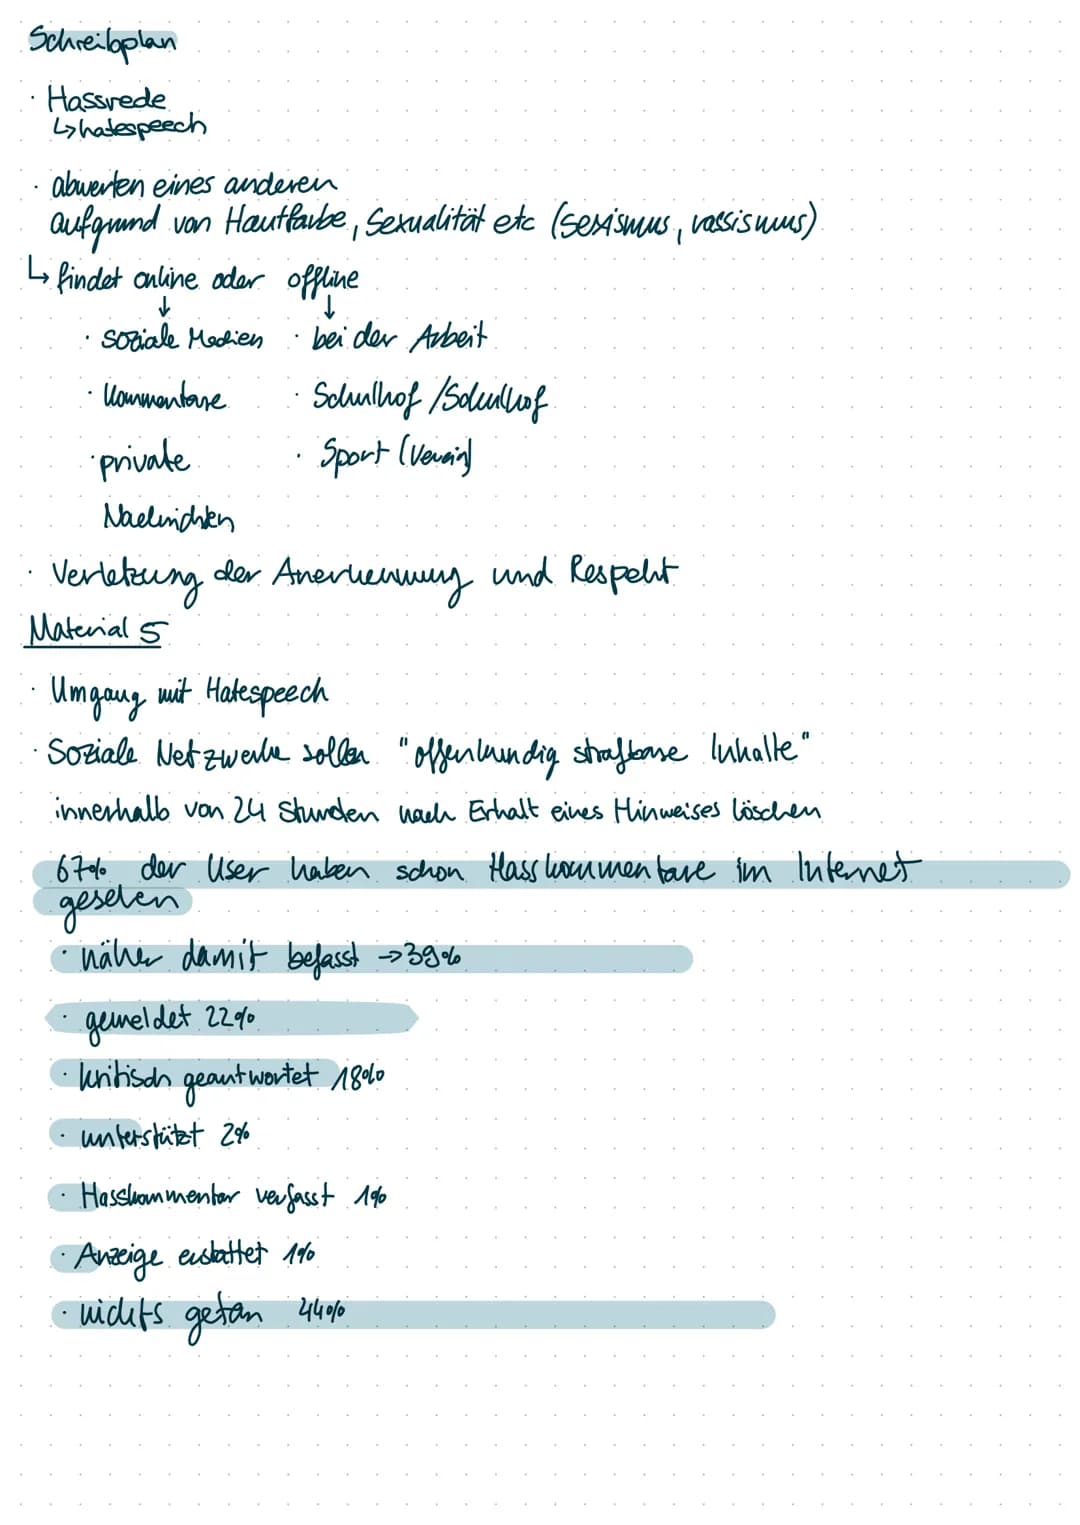 Schreibplan
· Hassrede
↳hatespeech
· abwerten eines anderen
aufgrund von Hautfarbe, Sexualität etc (sexismus, rassismus)
↳ findet online oder offline
↓ ↓
· soziale Medien · bei der Arbeit
· Kommentare · Schulhof / Schulhof
· private · Sport (Verein)
Nachrichten
· Verletzung der Anerkennung und Respekt
Material 5
· Umgang mit Hatespeech
· Soziale Netzwerke sollen "offenkundig strafbare Inhalte"
innerhalb von 24 Stunden nach Erhalt eines Hinweises löschen
67% der User haben schon Hasskommentare im Internet
gesehen
· näher damit befasst →39%
· gemeldet 22%
· kritisch geantwortet 18%
· unterstützt 2%
· Hasskommentar verfasst 1%
· Anzeige erstattet 1%
· nichts getan 44%